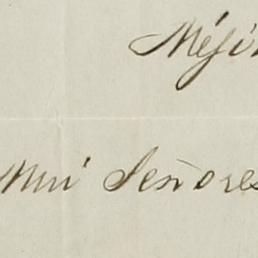 Méji
Mui Señores